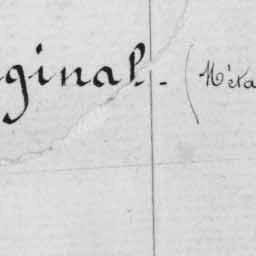 ginal. (N'éta